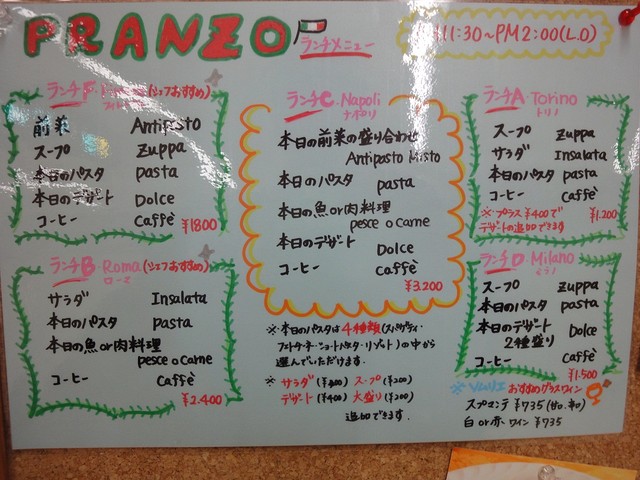 PRANZO
ランチメニュー
11:30～PM2:00(L.O)
ランチF (シェフおすすめ)
前菜 Antipasto
スープ Zuppa
本日のパスタ pasta
本日のデザート Dolce
コーヒー Caffè
¥1800
ランチB・Roma(シェフおすすめ)
ローマ
サラダ Insalata
本日のパスタ pasta
本日の魚or肉料理
pesce o carne
コーヒー Caffè
¥2.400
ランチC・Napoli
ナポリ
本日の前菜の盛り合わせ
Antipasto Misto
本日のパスタ pasta
本日の魚or肉料理
pesce o carne
本日のデザート Dolce
コーヒー caffè
¥3.200
※本日のパスタは4種類(スパゲッティ・
フェトチーネ・ショートパスタ・リゾット)の中から
選んでいただけます。
※サラダ(¥400) スープ(¥200)
デザート(¥400) 大盛り(¥200)
追加できます。
ランチA・Torino
トリノ
スープ Zuppa
サラダ Insalata
本日のパスタ pasta
コーヒー Caffè
※プラス¥400で
デザートの追加できます
¥1.200
ランチD・Milano
ミラノ
スープ Zuppa
本日のパスタ pasta
本日のデザート
2種盛り Dolce
コーヒー Caffè
¥1.500
※ソムリエおすすめグラスワイン
スプマンテ ¥735(甘口.辛口)
白or赤ワイン ¥735